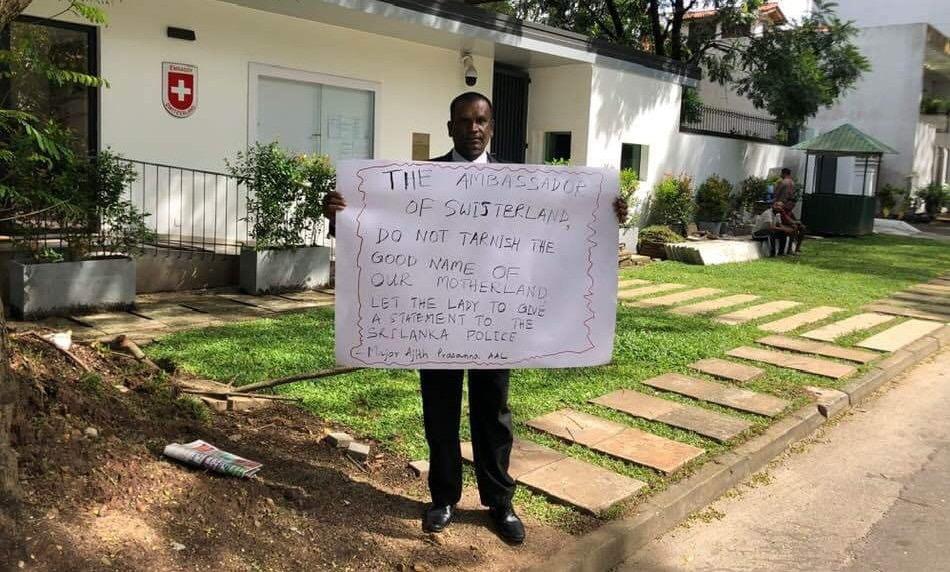 EMBASSY
SWITZERLAND
THE AMBASSADOR
OF SWISTERLAND,
DO NOT TARNISH THE
GOOD NAME OF
OUR MOTHERLAND
LET THE LADY TO GIVE
A STATEMENT TO THE
SRILANKA POLICE
- Major Ajith Prasanna AAL